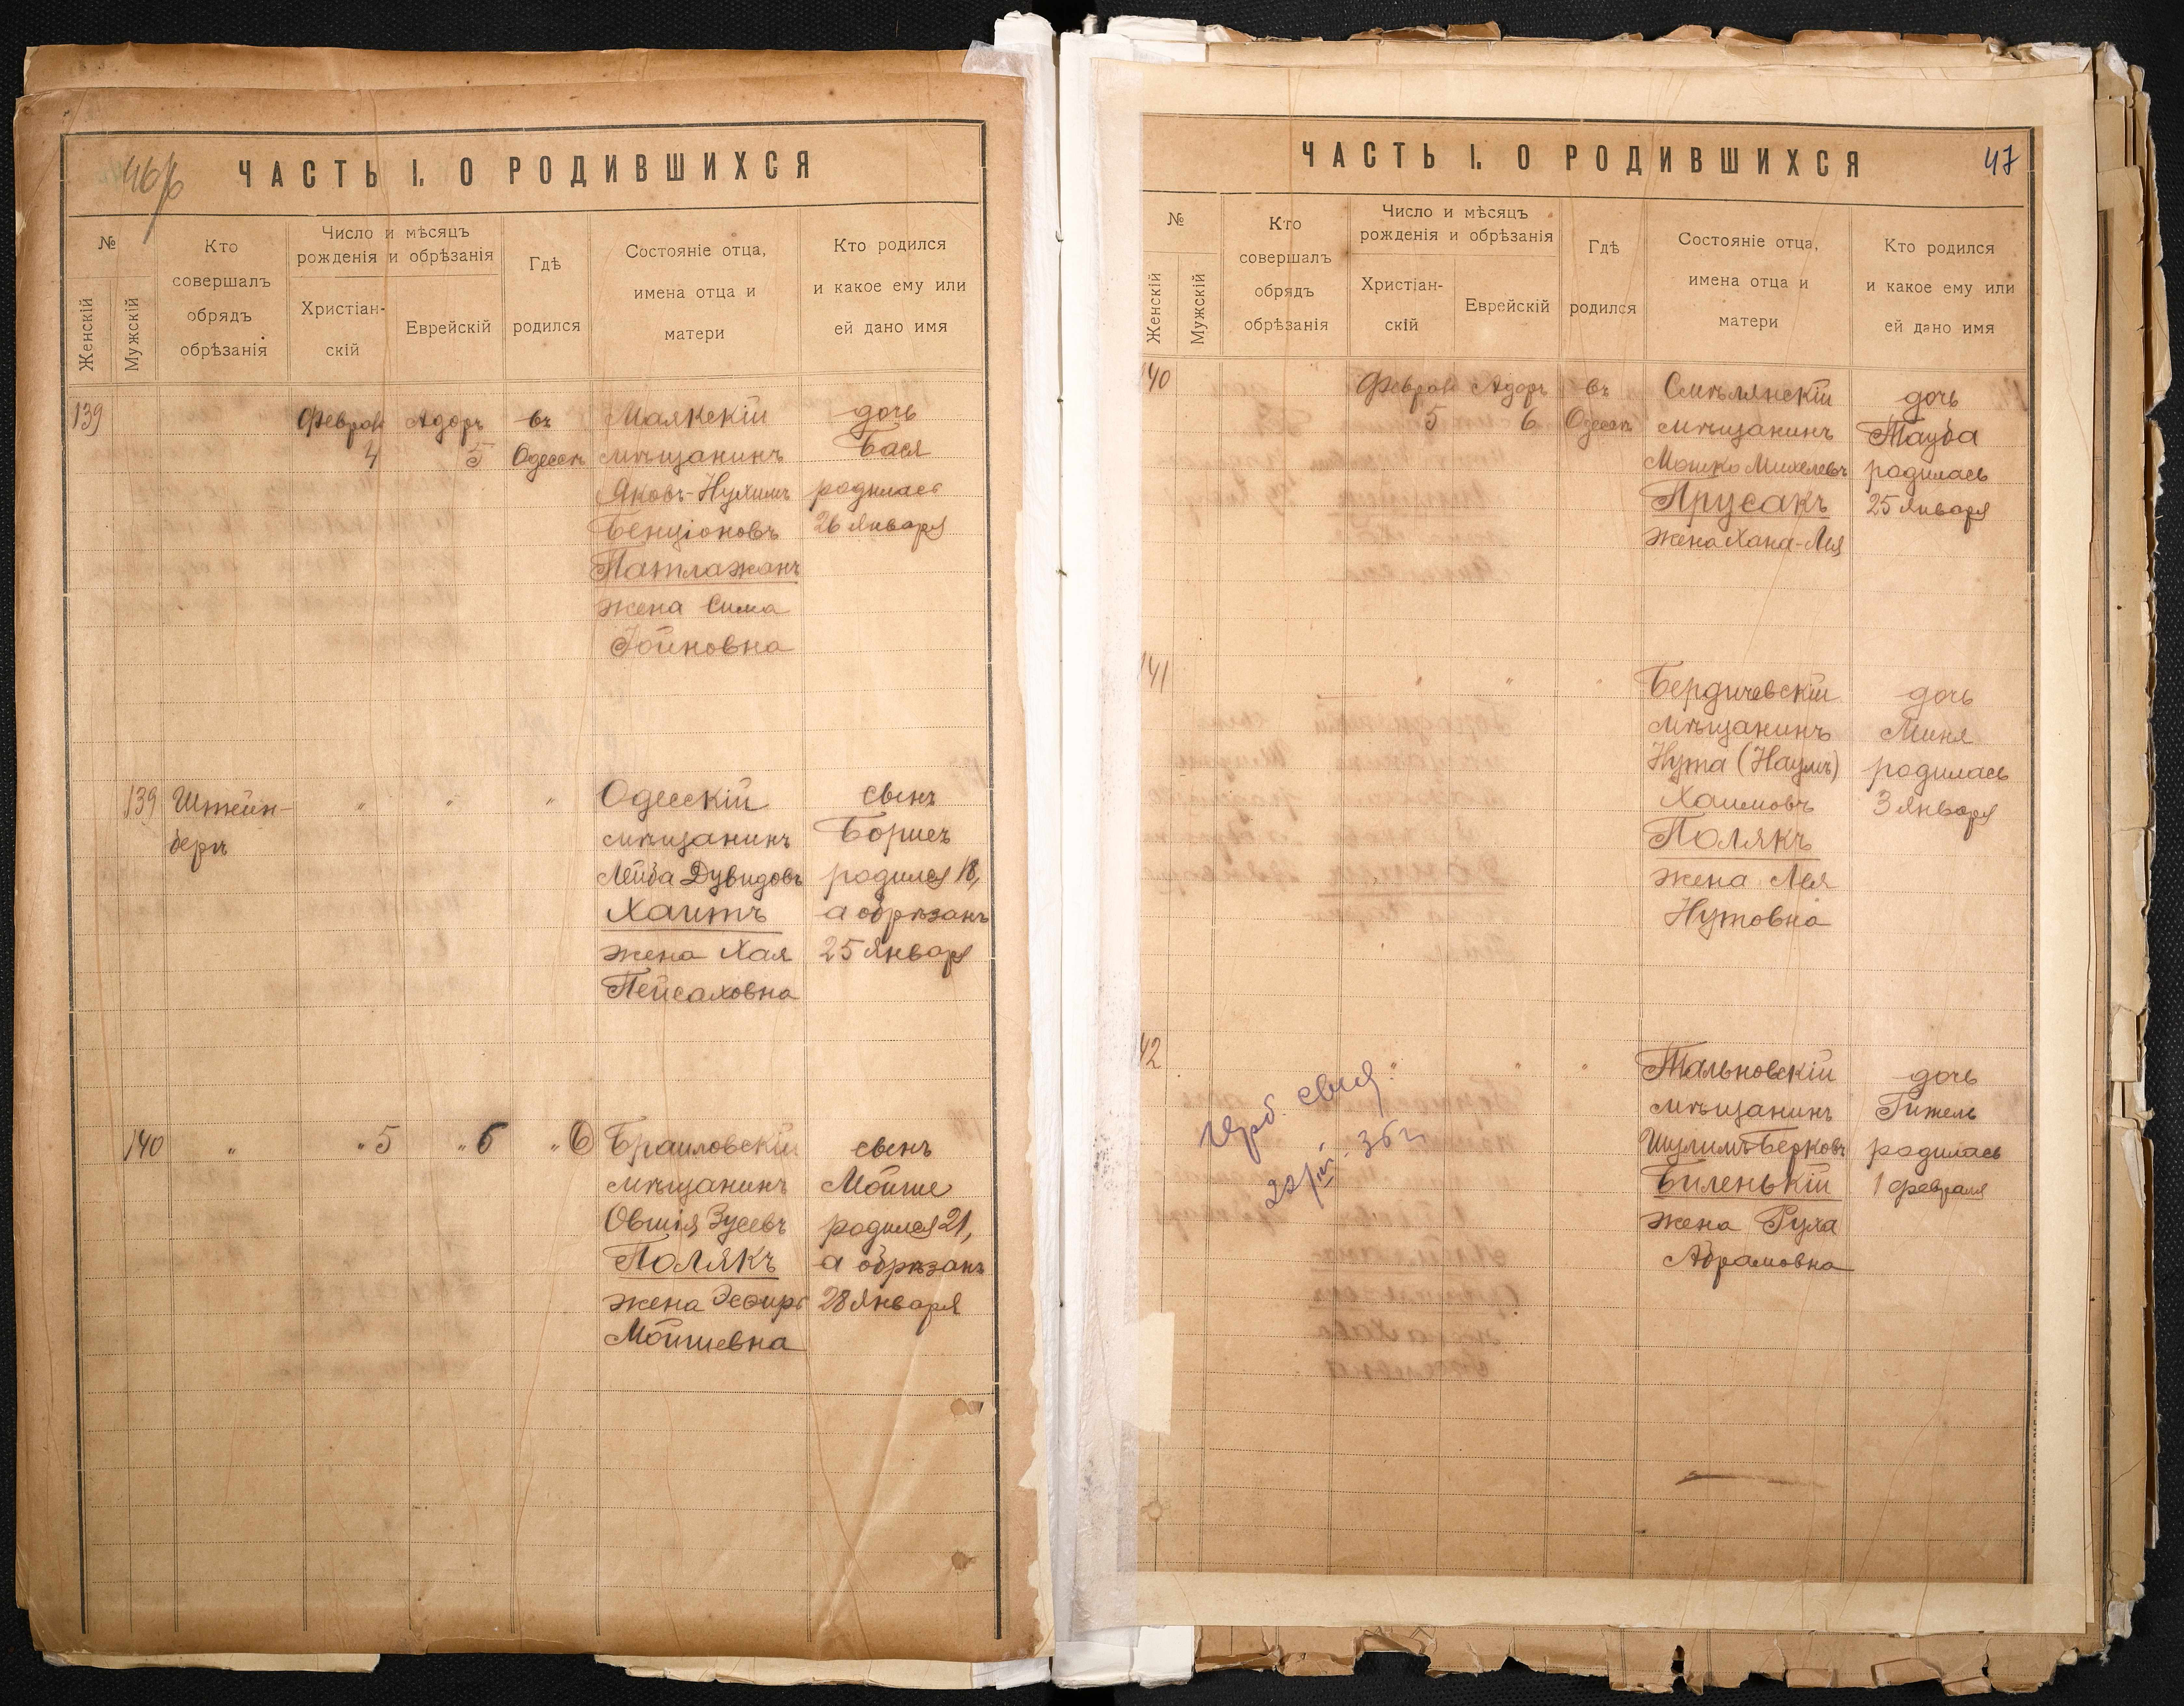 46
ЧАСТЬ I. О РОДИВШИХСЯ
№
Женскій
Мужскій
Кто
совершалъ
обрядъ
обрѣзанія
Число и мѣсяцъ
рожденія и обрѣзанія
Христіан-
скій
Еврейскій
Гдѣ
родился
Состояніе отца,
имена отца и
матери
Кто родился
и какое ему или
ей дано имя
139 Феврал Адоръ въ Маякскій дочь
4 5 Одессѣ мѣщанинъ Бася
Яковъ-Нухимъ родилась
Бенціоновъ 26 Января
Патлажанъ
жена Сима
Іойновна
139 Штейн- " " " Одесскій сынъ
бергъ мѣщанинъ Борисъ
Лейба Дувидовъ родился 18,
Хаитъ а обрѣзанъ
жена Хая 25 Января
Пейсаховна
140 " " 5 " 6 " Браиловскій сынъ
мѣщанинъ Мойше
Овшія Зусевъ родился 21,
Полякъ а обрѣзанъ
жена Эсфирь 28 Января
Мойшевна
47
ЧАСТЬ I. О РОДИВШИХСЯ
№
Женскій
Мужскій
Кто
совершалъ
обрядъ
обрѣзанія
Число и мѣсяцъ
рожденія и обрѣзанія
Христіан-
скій
Еврейскій
Гдѣ
родился
Состояніе отца,
имена отца и
матери
Кто родился
и какое ему или
ей дано имя
140 Феврал Адоръ въ Смѣлянскій дочь
5 6 Одессѣ мѣщанинъ Тауба
Мошко Михелевъ родилась
Прусакъ 25 Января
жена Хана-Лея
141 " " " Бердичевскій дочь
мѣщанинъ Миня
Нута (Наумъ) родилась
Хаимовъ 3 Января
Полякъ
жена Лея
Нутовна
42 " " " Тальновскій дочь
мѣщанинъ Гитель
Шулимъ Берковъ родилась
Биленькій 1 Февраля
жена Рухa
Абрамовна
36 г